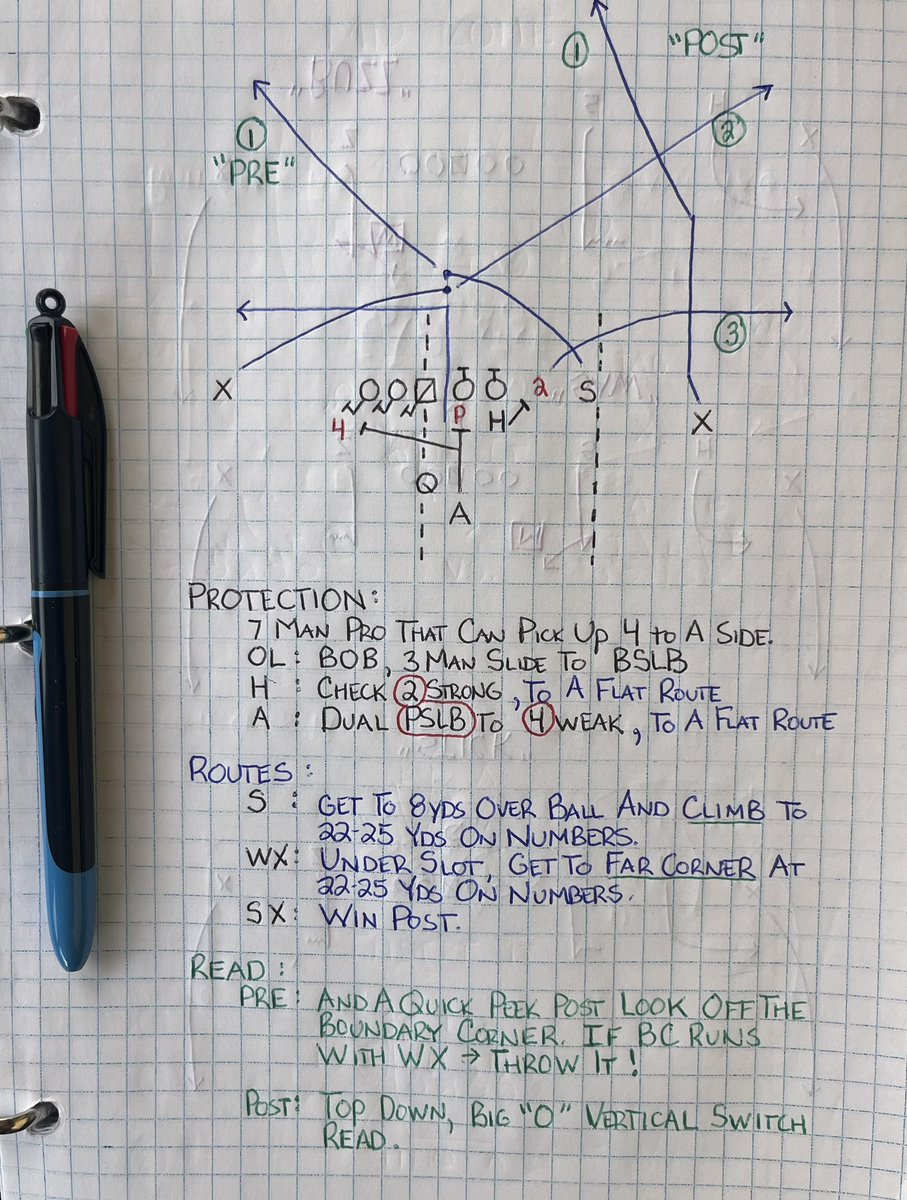 ① "POST"
① ②
"PRE"
③
X 2 S
4 P H X
Q
A
PROTECTION:
7 MAN PRO THAT CAN PICK UP 4 TO A SIDE.
OL: BOB, 3 MAN SLIDE TO BSLB
H : CHECK 2 STRONG, TO A FLAT ROUTE
A : DUAL PSLB TO 4 WEAK, TO A FLAT ROUTE
ROUTES:
S : GET TO 8YDS OVER BALL AND CLIMB TO
22-25 YDS ON NUMBERS.
WX: UNDER SLOT, GET TO FAR CORNER AT
22-25 YDS ON NUMBERS.
SX: WIN POST.
READ:
PRE: AND A QUICK PEEK POST LOOK OFF THE
BOUNDARY CORNER. IF BC RUNS
WITH WX → THROW IT!
POST: TOP DOWN, BIG "O" VERTICAL SWITCH
READ.